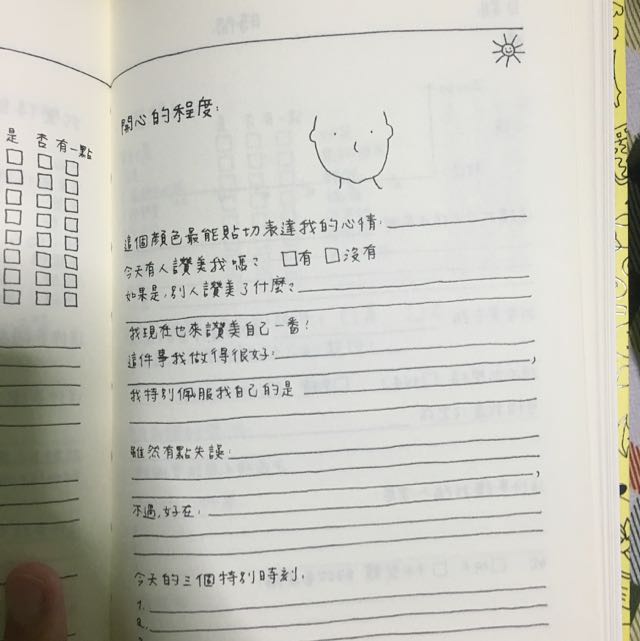 是 否 有一點
開心的程度:
這個顏色最能貼切表達我的心情:
今天有人讚美我嗎? □有 □沒有
如果是,別人讚美了什麼?
我現在也來讚美自己一番!
這件事我做得很好:
,
我特別佩服我自己的是
雖然有點失誤:
,
不過,好在:
今天的三個特別時刻:
1.
2.